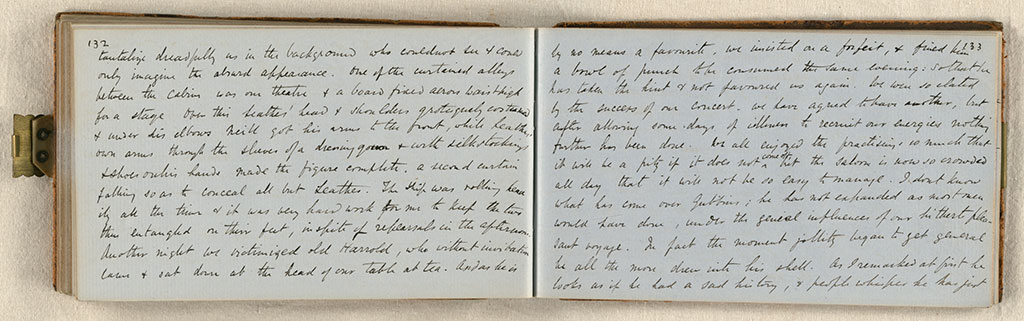 132
tantalize dreadfully us in the background who could not see & could
only imagine the absurd appearance. One of the curtained alleys
between the cabins was our theatre & a board fixed across waist high
for a stage. Over this Leather's head & shoulders grotesquely costumed
& under his elbows Neill got his arms to the front, while Leather's
own arms through the sleeves of a dressing gown & with silk stockings
& shoes on his hands made the figure complete, a second curtain
falling so as to conceal all but Leather. The ship was rolling heav
ily all the time & it was very hard work for me to keep the two
thus entangled on their feet, in spite of rehearsals in the afternoon.
Another night we victimized old Harrold, who without invitation
came & sat down at the head of our table at tea. And as he is
133
by no means a favourite, we insisted on a forfeit, & fined him
a bowl of punch to be consumed the same evening: so that he
has taken the hint & not favoured us again. We were so elated
by the success of our concert, we have agreed to have another, but
after allowing some days of idleness to recruit our energies nothing
further has been done. We all enjoyed the practisings so much that
it will be a pity if it does not come off but the saloon is now so crowded
all day that it will not be so easy to manage. I don't know
what has come over Gubbins; he has not expanded as most men
would have done, under the genial influences of our hitherto plea
sant voyage. In fact the moment jollity began to get general
he all the more drew into his shell. As I remarked at first he
looks as if he had a sad history, & people whisper he has just